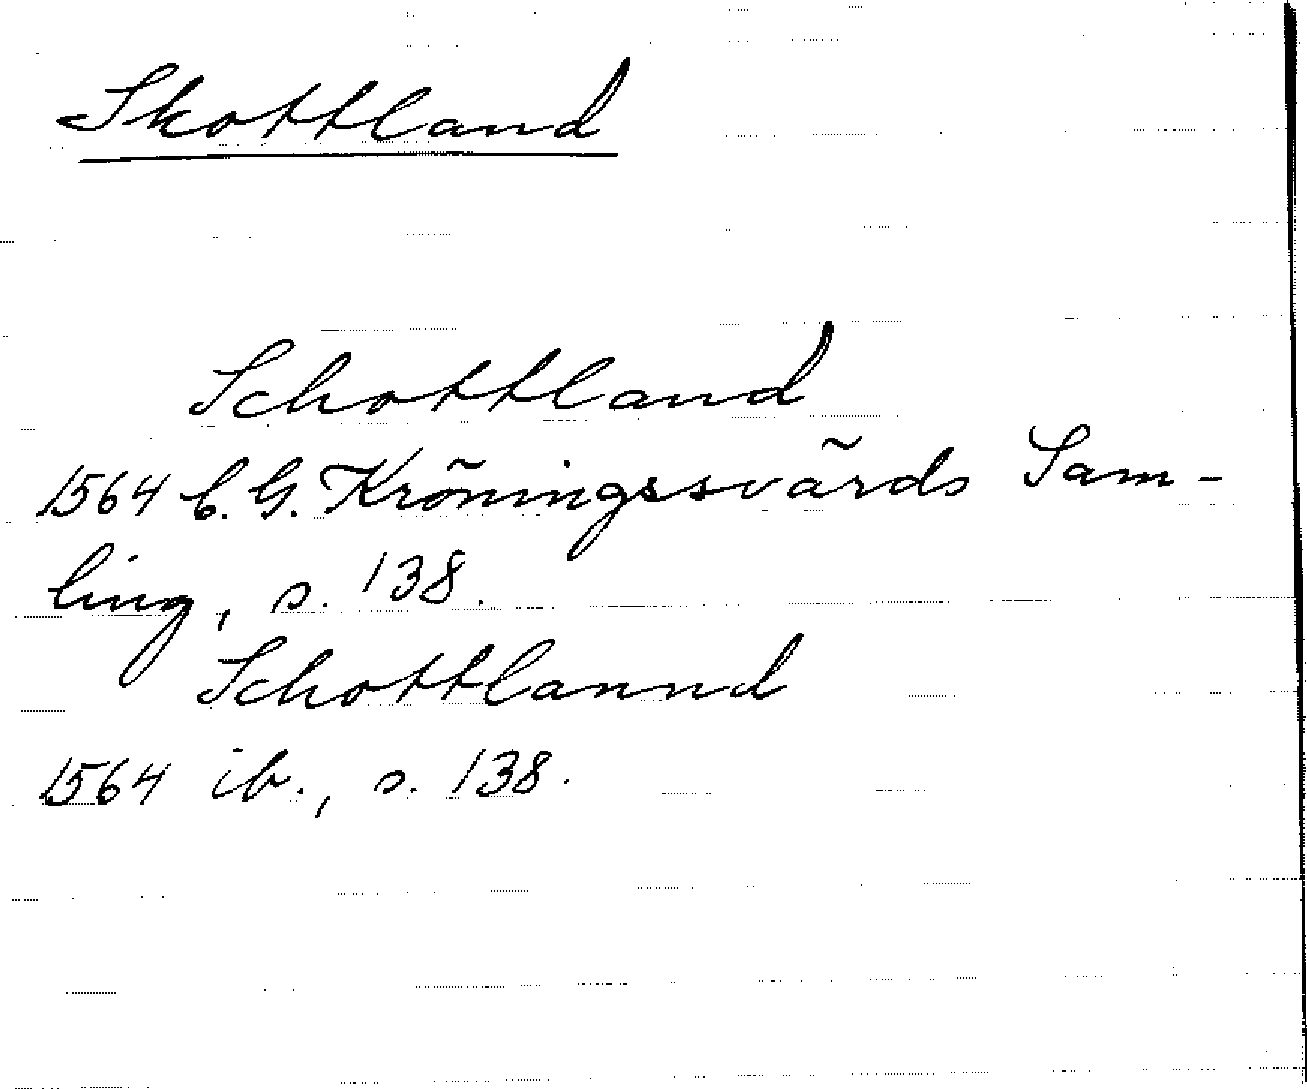 Skottland
Schottland
1564 C. G. Kröningssvärds Sam-
ling, s. 138.
Schottlannd
1564 ib., s. 138.